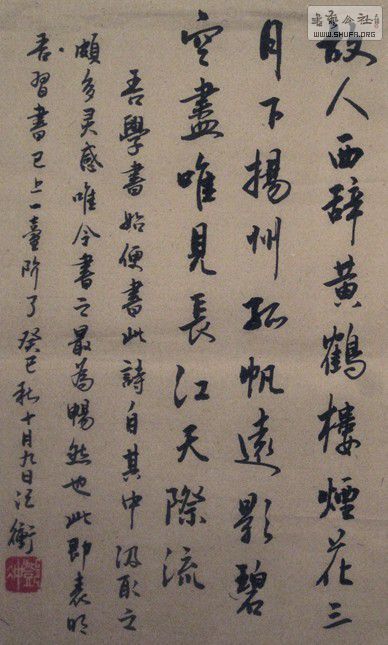 故人西辞黄鶴樓煙花三
月下揚州孤帆遠影碧
空盡唯見長江天際流
吾學書始便書此詩自其中汲取之
頗多灵感唯今書之最為暢然也此即表明
吾習書已上一臺阶了癸巳秋十月九日
WWW.SHUFA.ORG